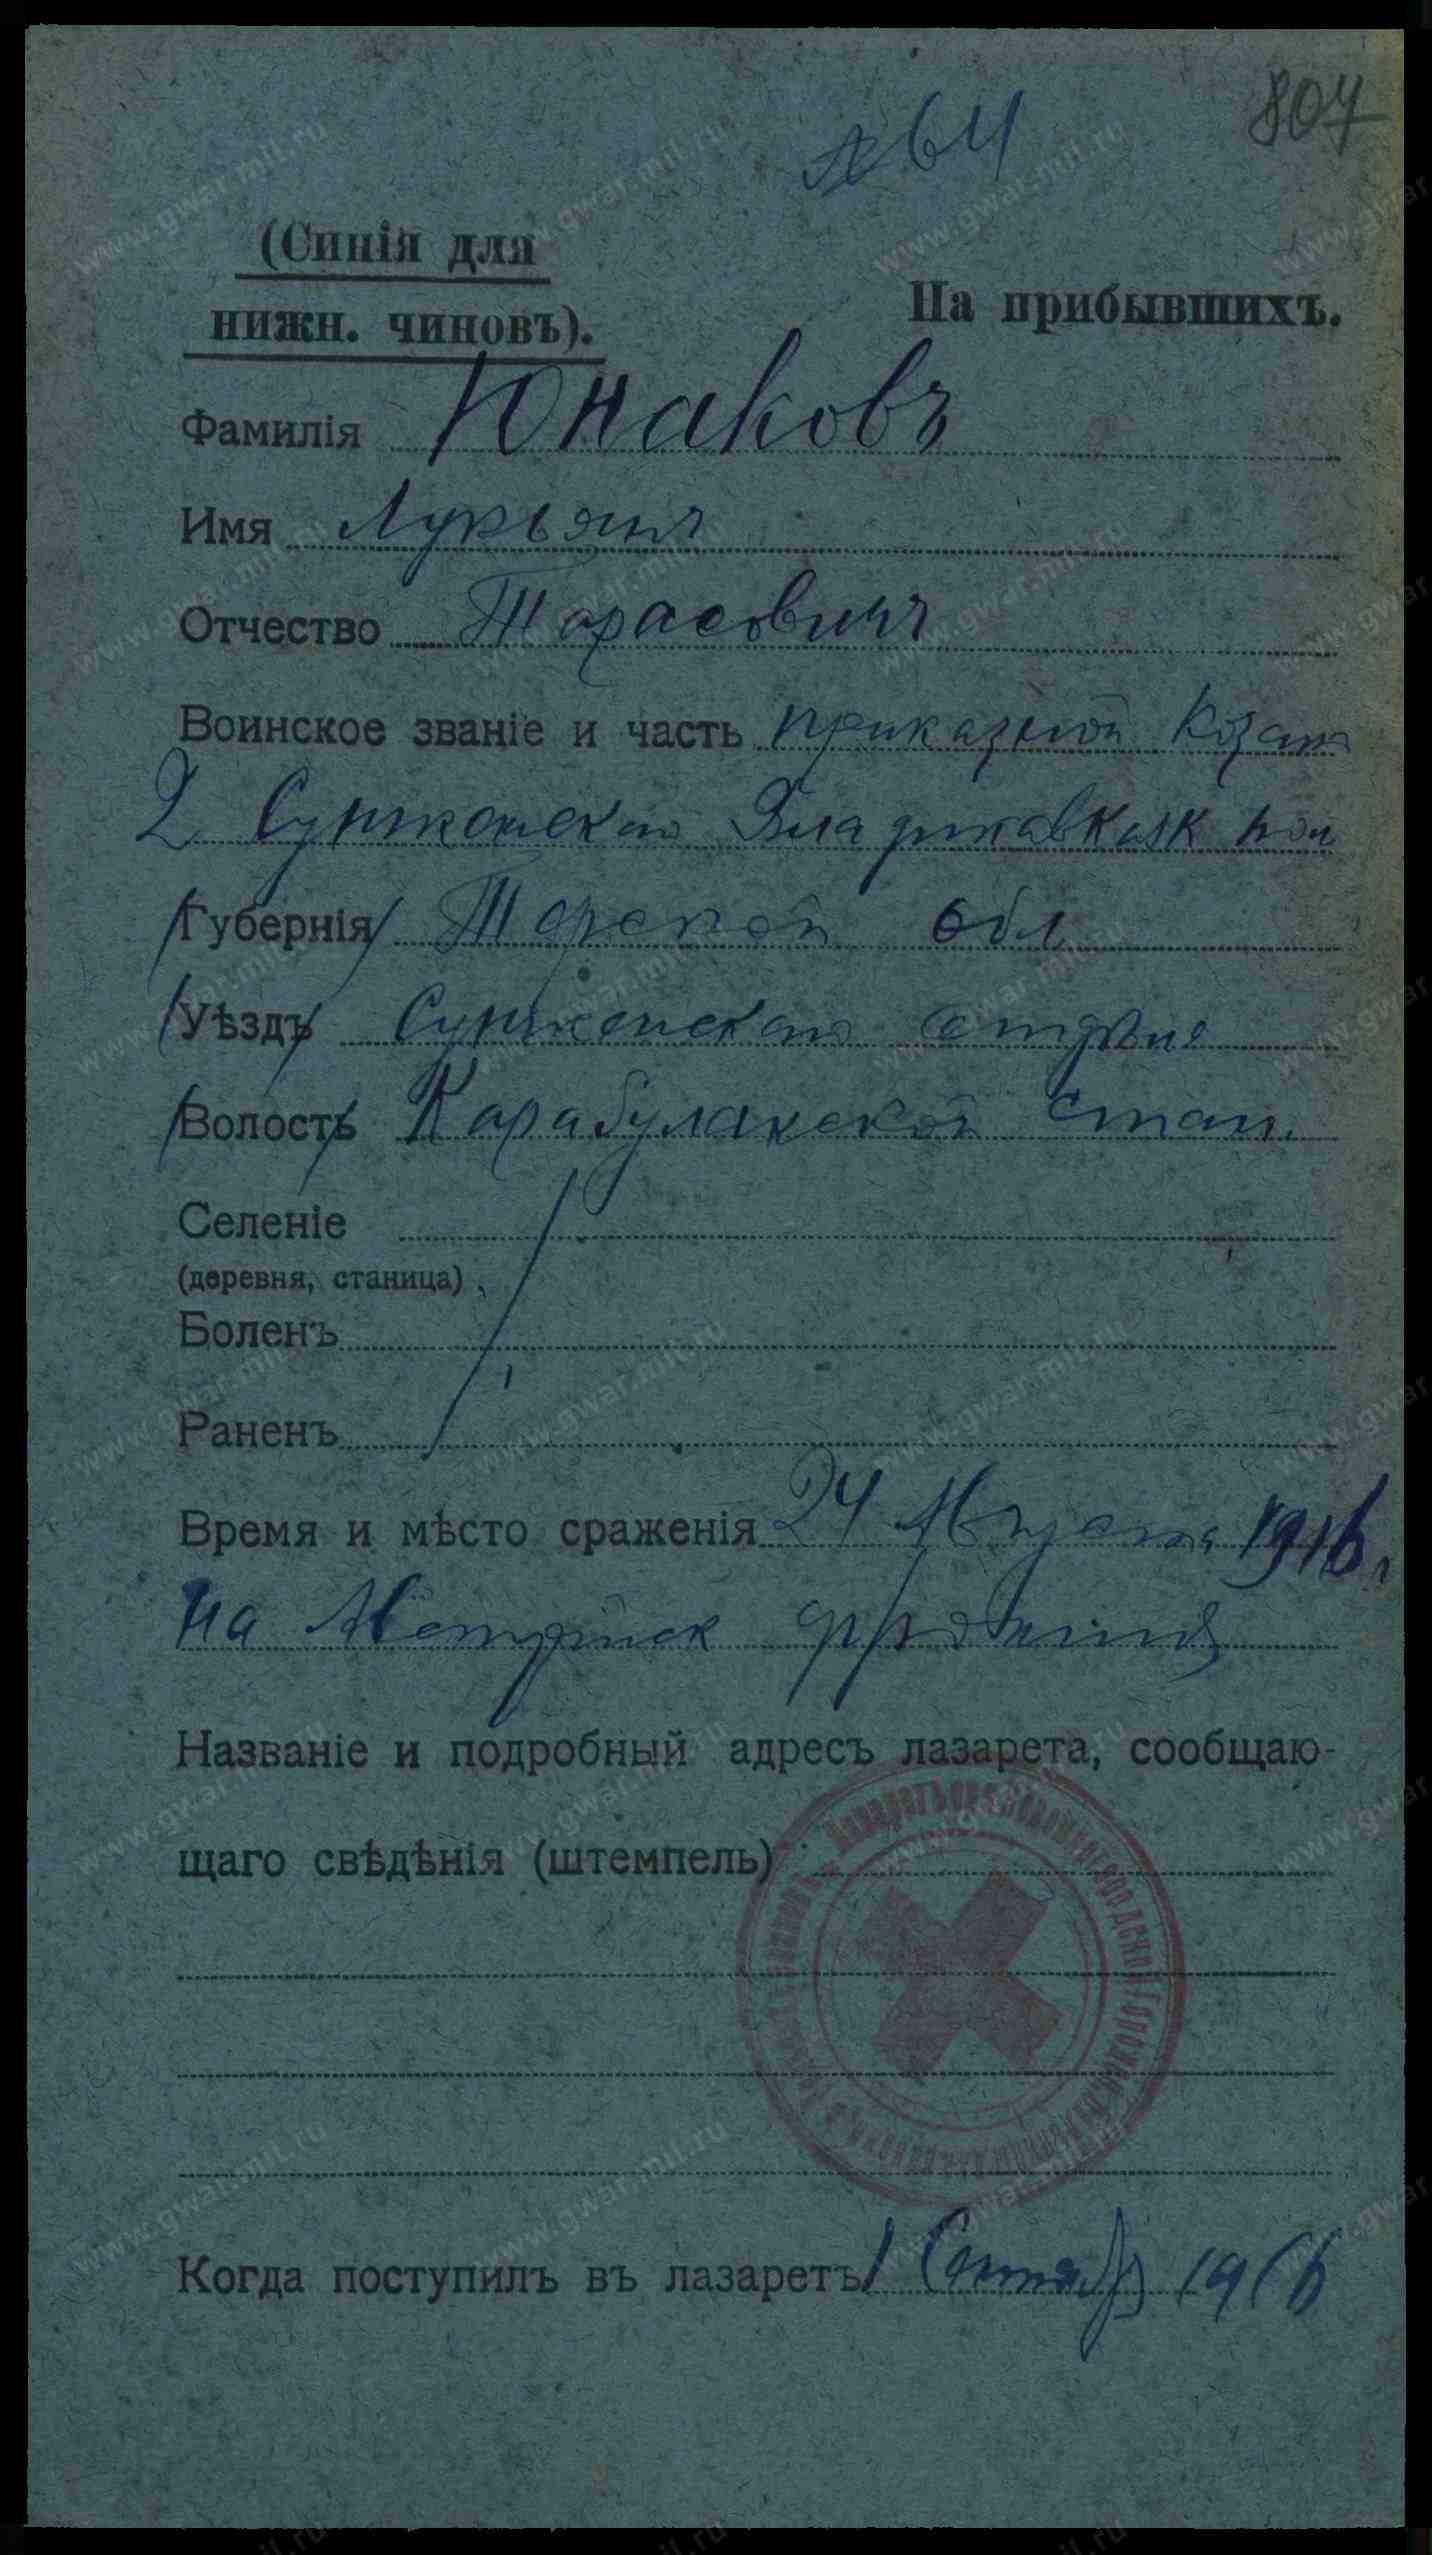 807
№ 64
(Синія для
нижн. чиновъ).
На прибывшихъ.
Фамилія Юнаковъ
Имя Лукьянъ
Отчество Тарасовичъ
Воинское званіе и часть приказной Козакъ
2 Сунженскаго Владикавказк пол
Губернія Терской обл
Уѣздъ Сунженскаго отдѣла
Волость Карабулакской стан.
Селеніе
(деревня, станица)
Боленъ
Раненъ
Время и мѣсто сраженія 24 Августа 1916 г
на Австрійск
Названіе и подробный адресъ лазарета, сообщаю-
щаго свѣдѣнія (штемпель)
Когда поступилъ въ лазаретъ 1 Сентябр 1916
www.gwar.mil.ru